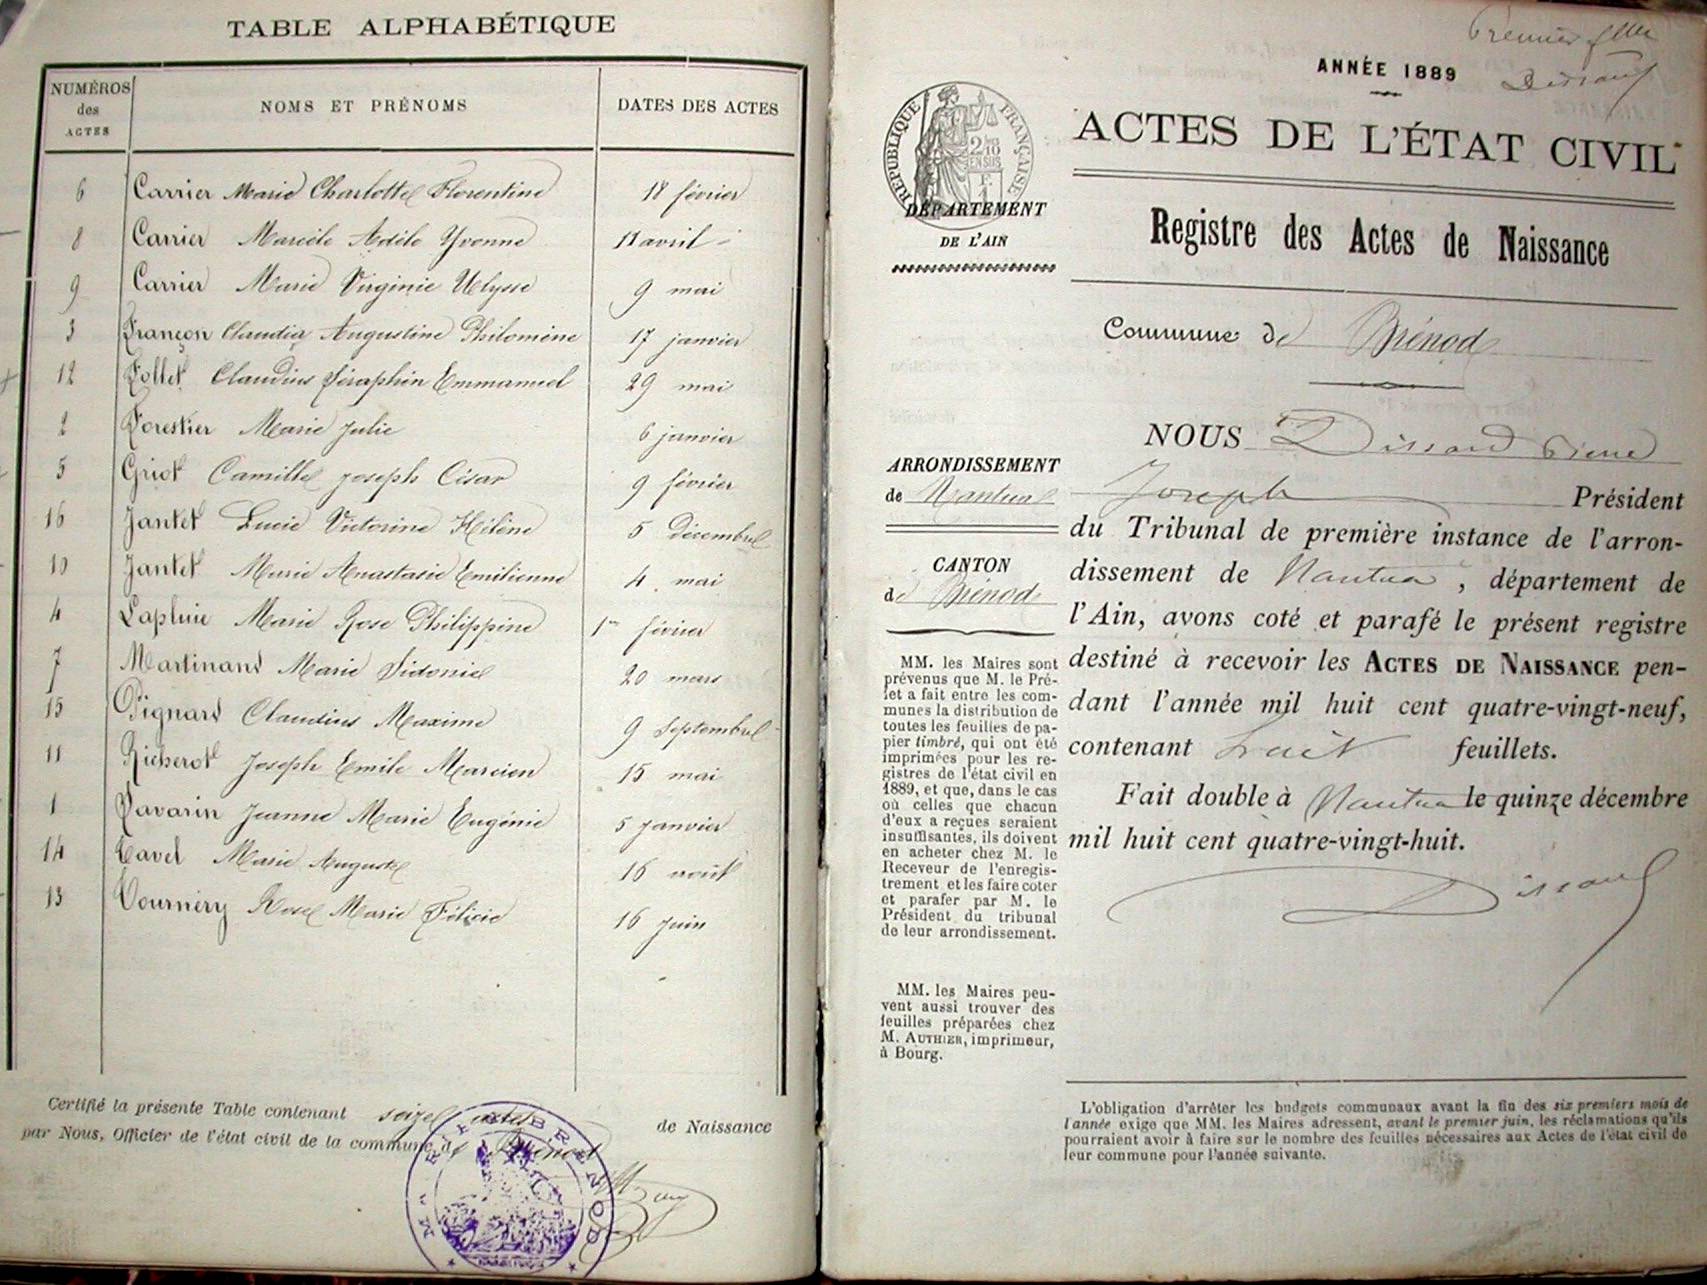 TABLE ALPHABÉTIQUE
NUMÉROS des ACTES NOMS ET PRÉNOMS DATES DES ACTES
6 Carrier Marie Charlotte Florentine 18 février
8 Carrier Marcèle Adèle Yvonne 11 avril
9 Carrier Marie Virginie Ulysse 9 mai
3 Françon Claudia Augustine Philomène 17 janvier
12 Follet Claudius Séraphin Emmanuel 29 mai
2 Forestier Marie Julie 6 janvier
5 Griot Camille Joseph César 9 février
16 Jantet Lucie Victorine Hélène 5 Décembre
10 Jantet Marie Anastasie Emilienne 4 mai
4 Lapluie Marie Rose Philippine 1er février
7 Martinand Marie Sidonie 20 mars
15 Pignard Claudius Maxime 9 Septembre
11 Richerot Joseph Emile Marcien 15 mai
1 Savarin Jeanne Marie Eugénie 5 janvier
14 Tavel Marie Auguste 16 août
13 Tournéry Rose Marie Félicie 16 juin
Certifié la présente Table contenant seize actes de Naissance
par Nous, Officier de l'état civil de la commune de Brénod
MAIRIE BRENOD
Premier flle
Dissard
ANNÉE 1889
ACTES DE L'ÉTAT CIVIL
RÉPUBLIQUE FRANÇAISE
DÉPARTEMENT
DE L'AIN
Registre des Actes de Naissance
Commune de Brénod
ARRONDISSEMENT
de Nantua
CANTON
de Brénod
MM. les Maires sont
prévenus que M. le Pré-
fet a fait entre les com-
munes la distribution de
toutes les feuilles de pa-
pier timbré, qui ont été
imprimées pour les re-
gistres de l'état civil en
1889, et que, dans le cas
où celles que chacun
d'eux a reçues seraient
insuffisantes, ils doivent
en acheter chez M. le
Receveur de l'enregis-
trement et les faire coter
et parafer par M. le
Président du tribunal
de leur arrondissement.
MM. les Maires peu-
vent aussi trouver des
feuilles préparées chez
M. AUTHIER, imprimeur,
à Bourg.
NOUS Dissard Pierre
Joseph Président
du Tribunal de première instance de l'arron-
dissement de Nantua, département de
l'Ain, avons coté et parafé le présent registre
destiné à recevoir les ACTES DE NAISSANCE pen-
dant l'année mil huit cent quatre-vingt-neuf,
contenant huit feuillets.
Fait double à Nantua le quinze décembre
mil huit cent quatre-vingt-huit.
Dissard
L'obligation d'arrêter les budgets communaux avant la fin des six premiers mois de
l'année exige que MM. les Maires adressent, avant le premier juin, les réclamations qu'ils
pourraient avoir à faire sur le nombre des feuilles nécessaires aux Actes de l'état civil de
leur commune pour l'année suivante.